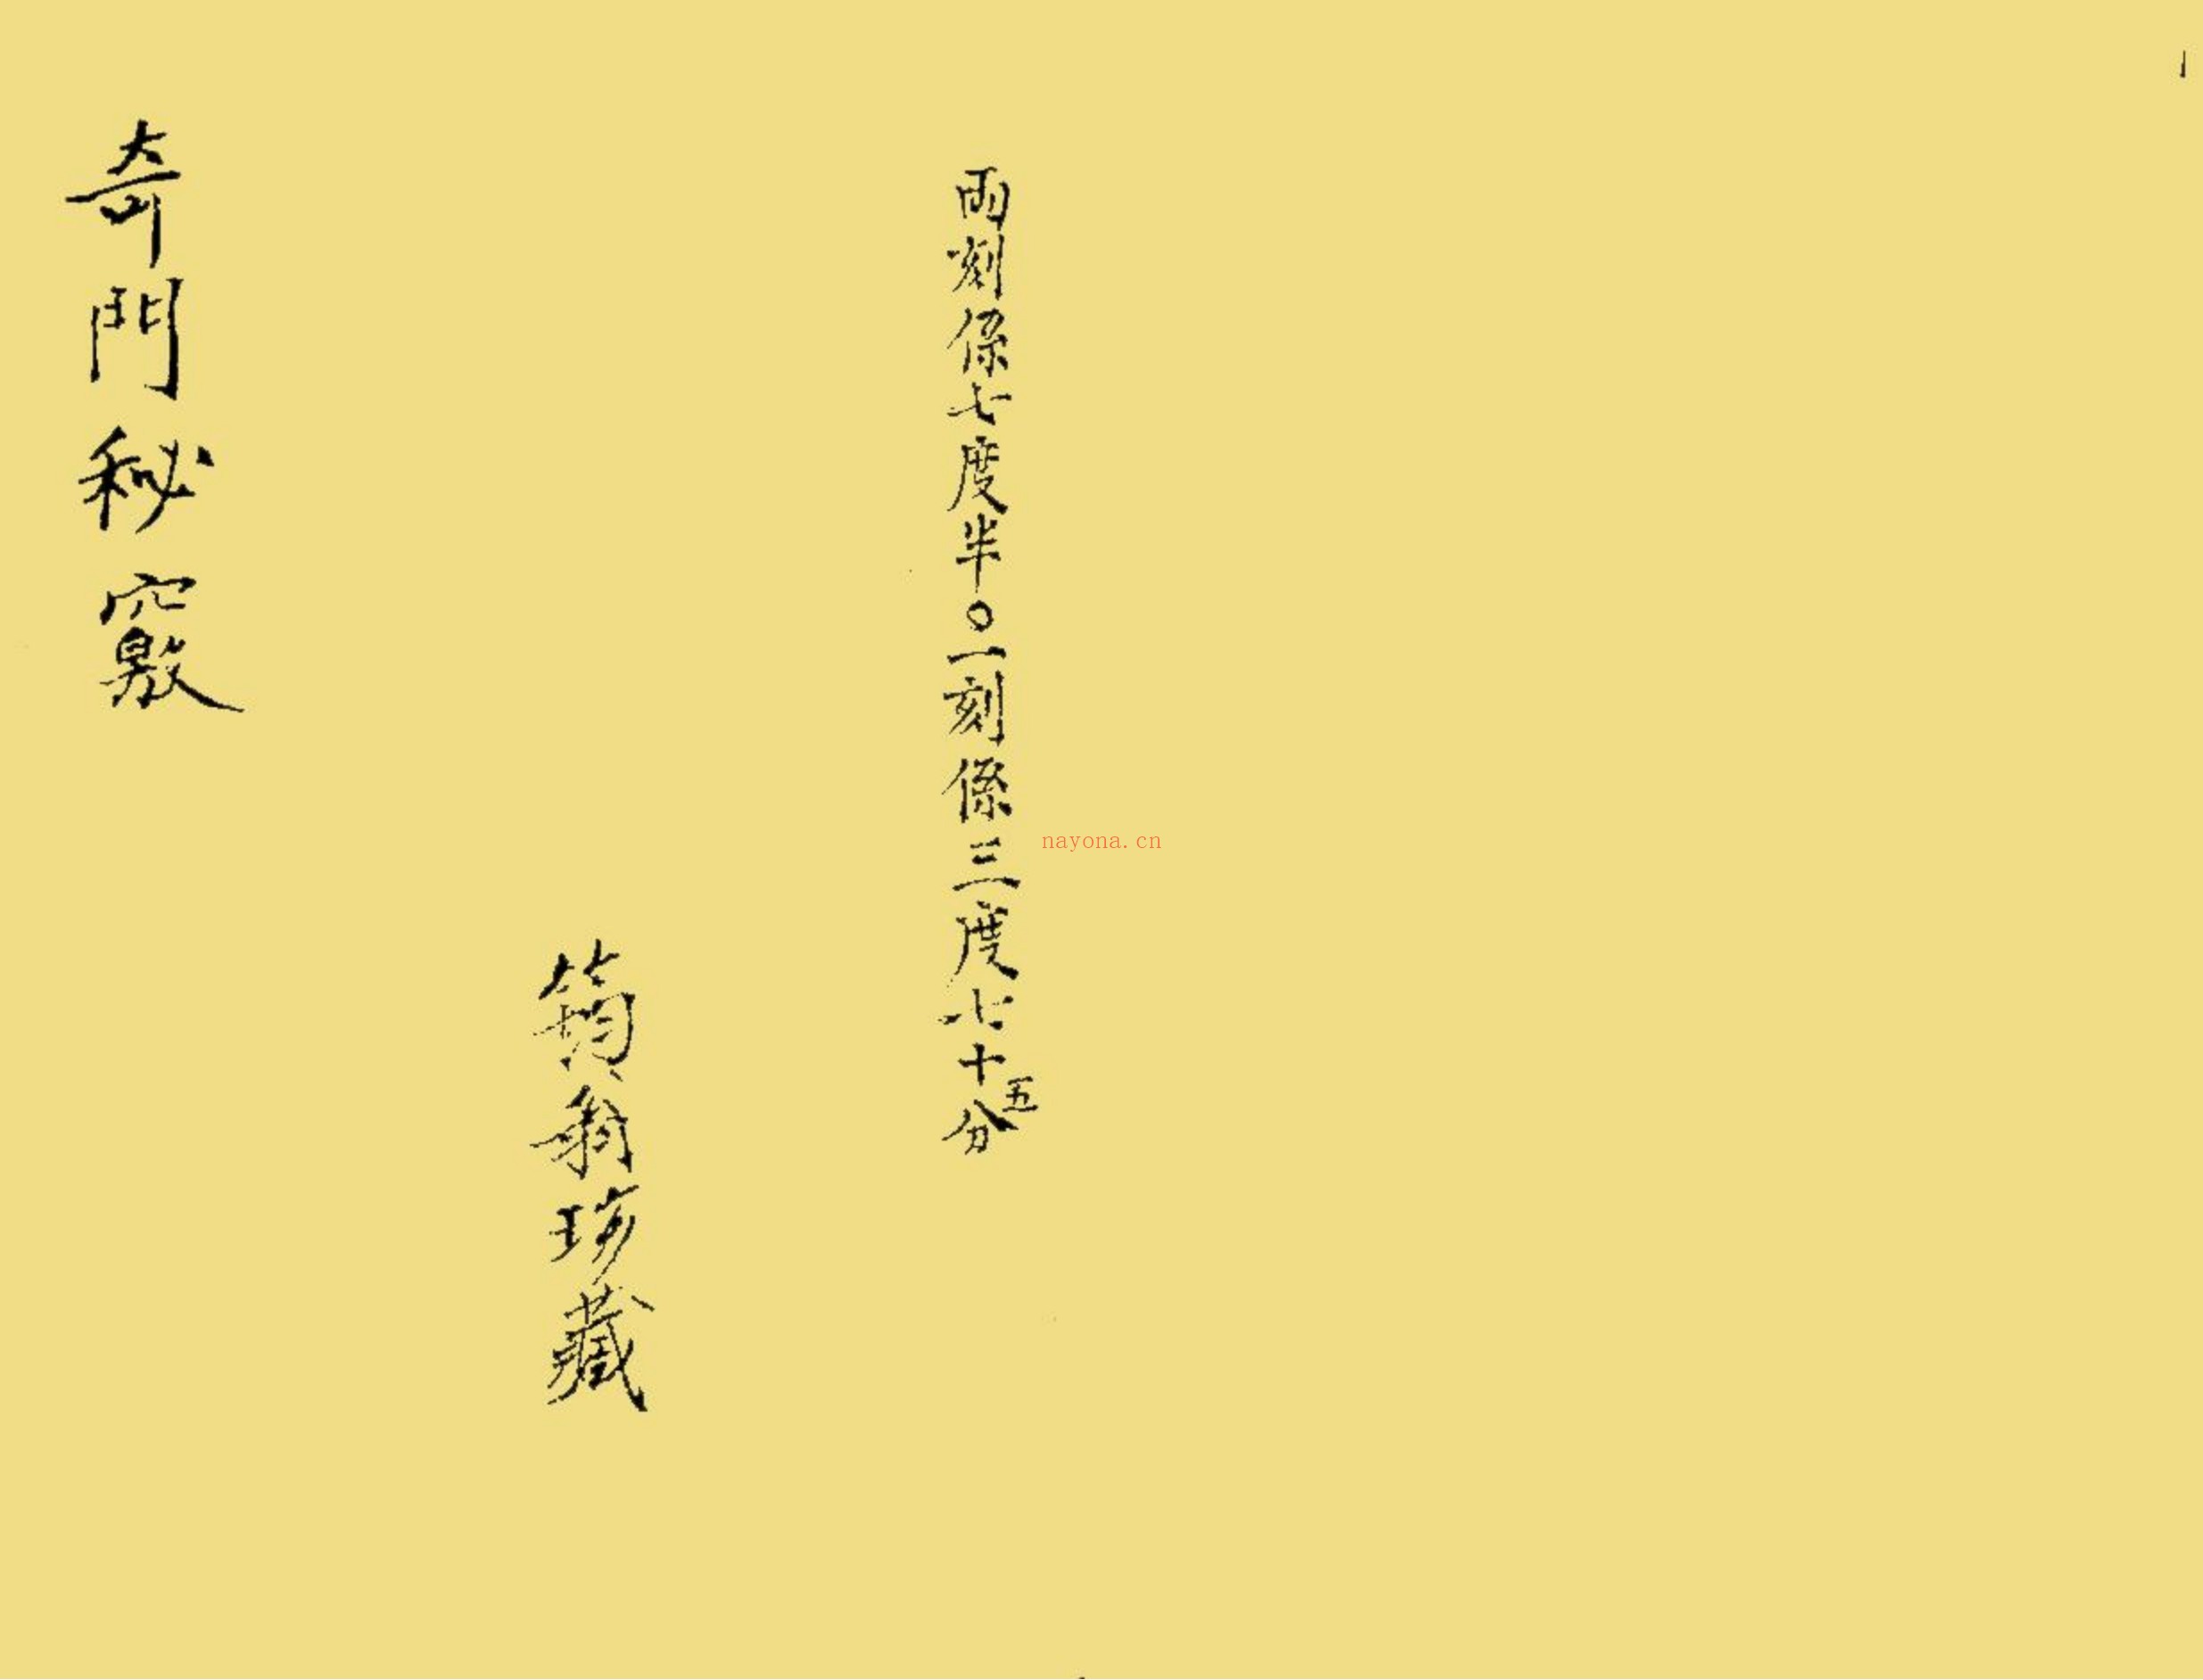 兩刻係七度半〇一刻係三度七十五分
筠翁珍藏
奇門秘竅
nayona.cn